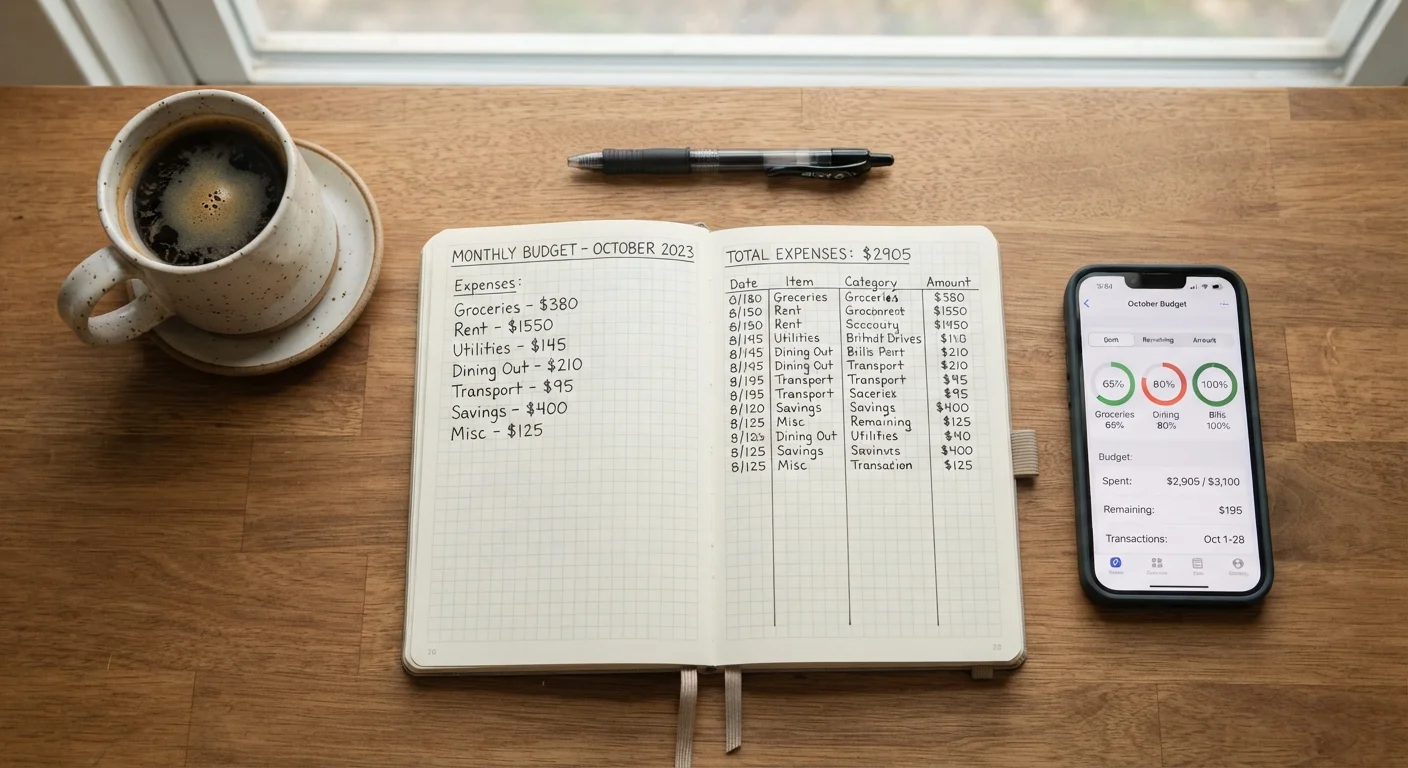 MONTHLY BUDGET – OCTOBER 2023
Expenses:
Groceries – $380
Rent – $1550
Utilities – $145
Dining Out – $210
Transport – $95
Savings – $400
Misc – $125
TOTAL EXPENSES: $2905
Date Item Category Amount
0/180 Groceries Groceries $580
8/150 Rent Groconreot $1550
8/150 Rent Sccocuty $1450
8/145 Utilities Brithdt Drives
8/145 Dining Out Bills Peirt $210
8/145 Dining Out Transport $210
8/195 Transport Transport $45
8/195 Transport Saceriek $95
8/120 Savings Savings $400
8/125 Misc Remaining $125
Dining Out Utilities $40
8/125 Savings Savinuts $400
8/125 Misc Transacion $125
October Budget
Remaining Amount
65% 80% 100%
Groceries Dining Bills
65% 80% 100%
Budget:
Spent: $2,905 / $3,100
Remaining: $195
Transactions: Oct 1-28